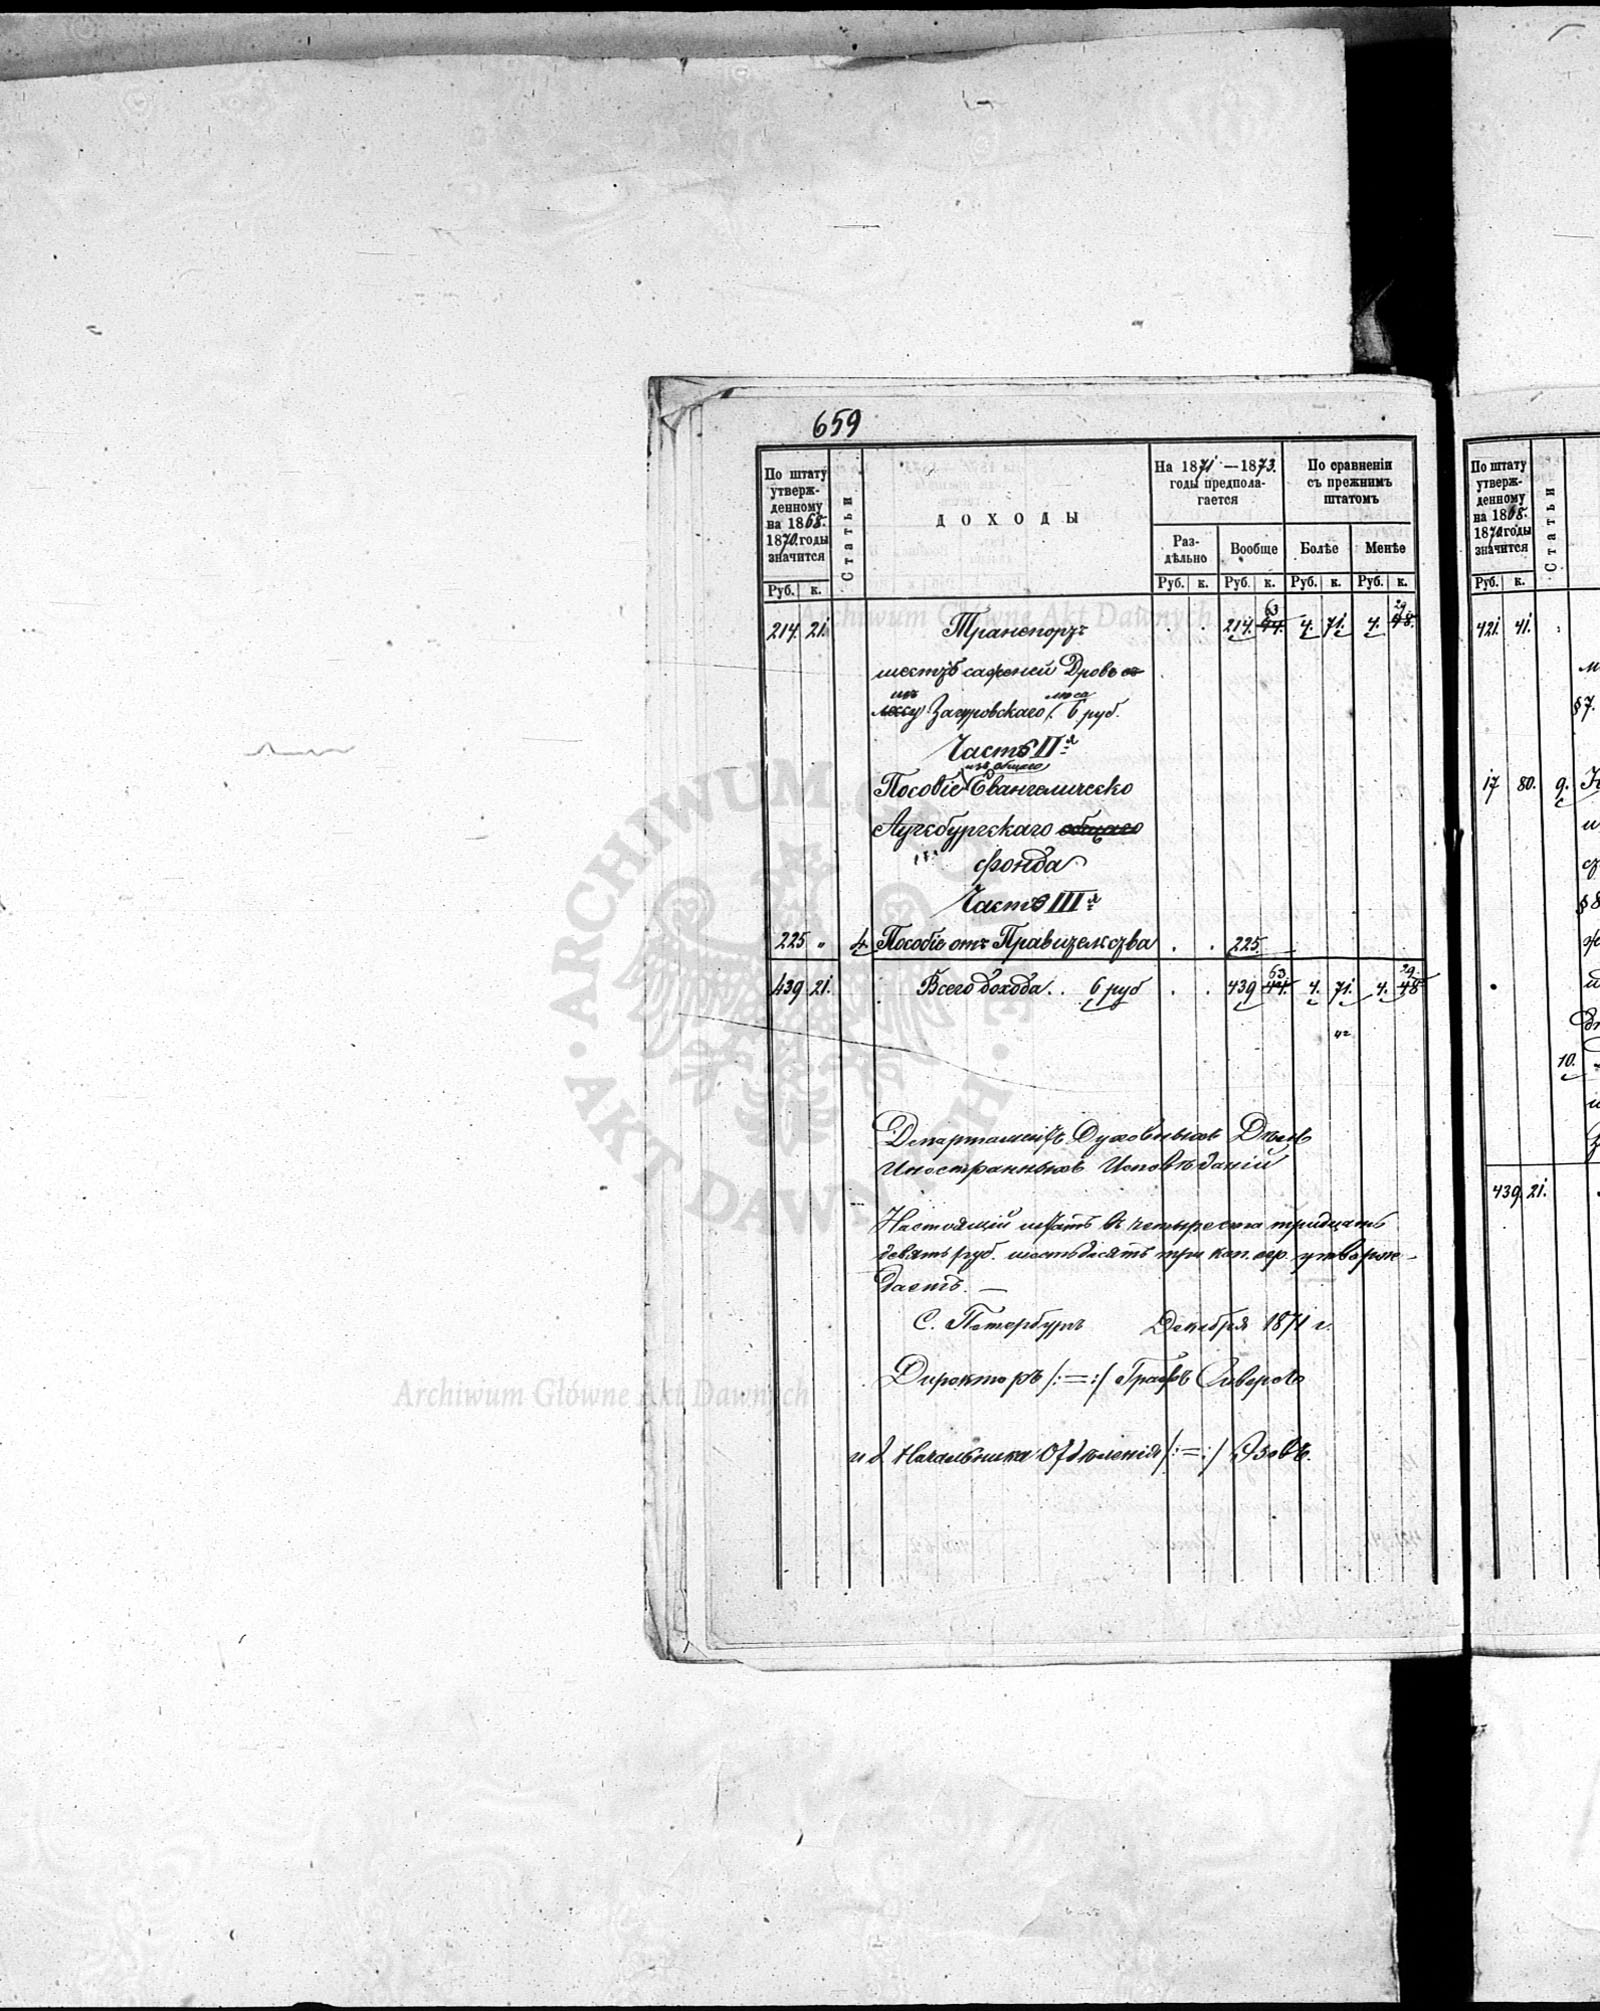 659
По штату утверж-
денному
на 1868.
1870. годы
значится
Статьи
ДОХОДЫ
На 1871 — 1873.
годы предпола-
гается
По сравненію
съ прежнимъ
штатомъ
Раз-
дѣльно
Вообще
Болѣе
Менѣе
Руб. к. Руб. к. Руб. к. Руб. к. Руб. к.
214. 21. Транспортъ 214. 63 44. 4. 71. 4. 29 48.
шесть саженей Дровъ
изъ лѣса
Загуровскаго 6 руб.
Часть II я
изъ общаго
Пособіе Евангелическо
Аугсбургскаго общаго
фонда
Часть III я
225 „ 4. Пособіе отъ Правительства . . 225. —
439 21. Всего дохода . . 6 руб . . 439 63 44. 4. 71. 4. 29. 48
Департаментъ Духовныхъ Дѣлъ
Иностранныхъ Исповѣданій
Настоящій штатъ въ четыреста тридцать
девять руб. шестьдесятъ три коп. сер. утверж-
даетъ. —
С. Петербургъ Декабря 1871 г.
Директоръ /:=:/ Графъ Сиверсъ
и д Начальника Отдѣленія /:=:/ Эзовъ.
По штату
утверж-
денному
на 1868.
1870 годы
значится
Статьи
Руб. к.
421. 41.
§ 7.
17 80. 9.
§ 8
10.
439. 21.
Archiwum Główne Akt Dawnych
ARCHIWUM GŁÓWNE • AKT DAWNYCH •
Archiwum Główne Akt Dawnych